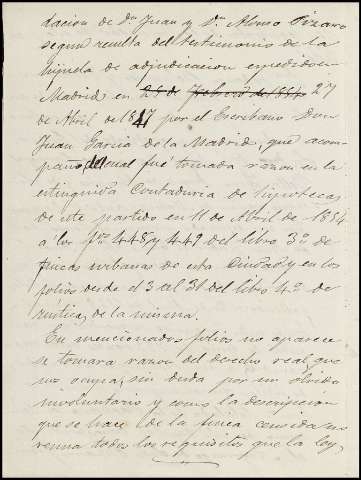 dacion de Dn Juan y Dn Alonso Pizarro
segun resulta del testimonio de la
hijuela de adjudicacion expedido en
Madrid en 28 de Febrero de 1854 27
de Abril de 1847 por el Escribano Don
Juan Garcia de la Madrid, que acom-
paño, del cual fué tomada razon en la
estinguida Contaduria de hipotecas
de este partido en 11 de Abril de 1854
á los fos 448 y 449 del libro 3º de
fincas urbanas de esta Ciudad y en los
folios desde el 3 al 31 del libro 4º de
rústica, de la misma.
En mencionados folios no aparece
se tomara razon del derecho real que
nos ocupa, sin duda por un olvido
involuntario y como la descripcion
que se hace de la finca consida no
reuna todos los requisitos que la ley